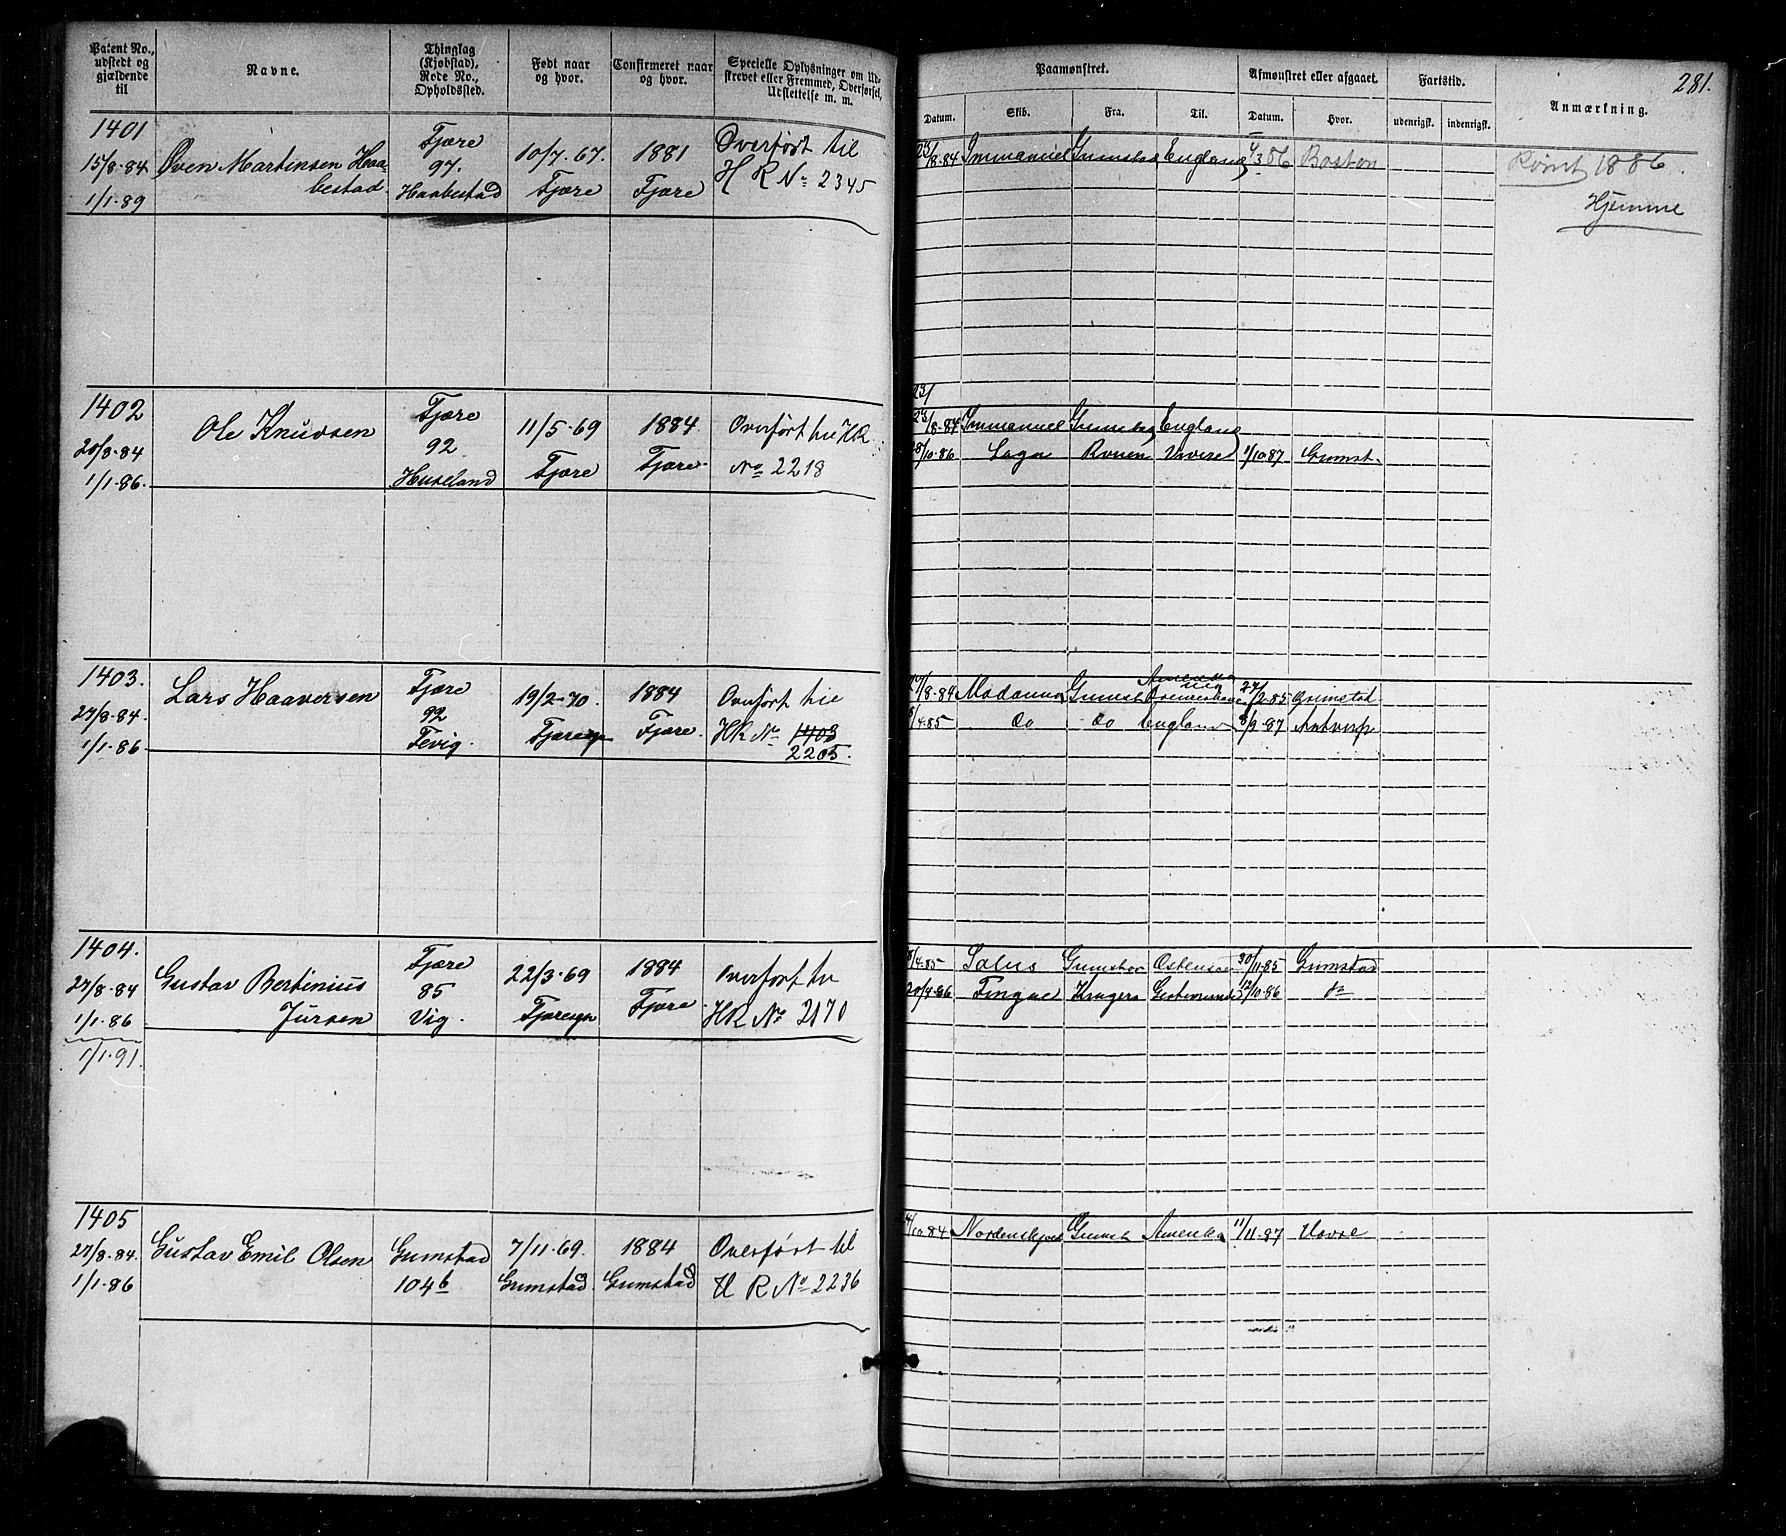 Patent No., udstedt og gjældende til
Navne.
Thinglag (Kjøbstad), Rode No., Opholdssted.
Født naar og hvor.
Confirmeret naar og hvor.
Specielle Oplysninger om Udskrevet eller Fremmed, Overførsel, Udslettelse m. m.
Paamønstret.
Afmønstret eller afgaaet.
Fartstid.
Anmærkning.
281.
Datum.
Skib.
Fra.
Til.
Datum.
Hvor.
udenrigst.
indenrigst.
1401
15/8-84
1/1-89
Øven Martinsen Haa-
bestad
Fjære
97.
Haabestad
10/7.67.
Fjære
1881
Fjære
Overført til
H R No 2345
23/8-84 Immanuel Grimstad England 86 Boston
Rømt 1886.
Hjemme
1402
20/8-84
1/1-86.
Ole Knudsen
Fjære
92.
Huseland
11/5-69
Fjære
1884
Fjære
Overført til HR
No 2218
23/
23/8-84 Immanuel England
28/10-86 Saga Rouen 1/10 87 Grimst.
1403.
27/8-84.
1/1-86.
Lars Haaversen
Fjære
92
Fevig.
19/2-70.
1884
Fjære.
Overført til
HR No 1403
2205.
27/8-84 Madonna Grimst 27/2-85 Grimstad
/4-85 do do England 8/9-87 Antverp
1404.
27/8-84
1/1-86
1/1-91
Gustav Bertinius
Jursen
Fjære
85
Vig.
22/3-69
1884
Fjære
Overført til
HR No 2170
/4-85 Grimstad 30/11-85 Grimstad
20/4-86 12/10-86
1405
27/8-84.
1/1-86
Gustav Emil Olsen
Grimstad
104b
7/11-69.
Grimstad
1884
Grimstad
Overført til
H R No 2236
/10-84 Grimst Amerika 11/11-87